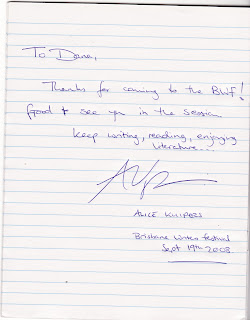 To Dana,
Thanks for coming to the BWF!
Good to see you in the session
Keep writing, reading, enjoying
literature...
ALICE KUIPERS
Brisbane Writers Festival
Sept 19th 2008